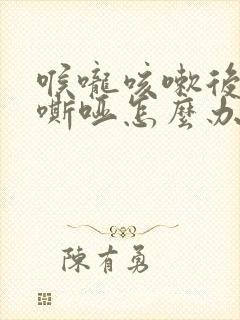 喉嚨咳嗽後
嘶啞怎麼办
陳有勇